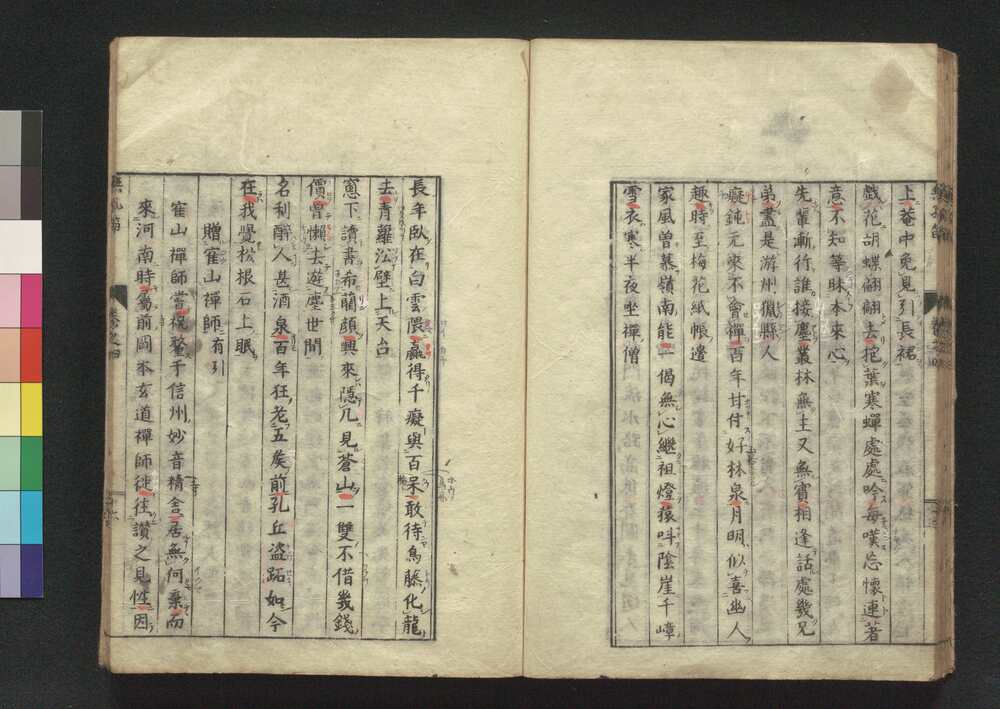 上菴中免見引長裙
戲花胡蝶翩翩去抱葉寒蟬處處吟每嘆忘懷連著
意不知等昧本來心
先輩漸行誰接塵叢林無主又無賓相逢話處幾兄
弟盡是游州獵縣人
癡鈍元來不會禪百年甘付好林泉月明似喜幽人
趣時至梅花紙帳邊
家風曾慕嶺南能一偈無心繼祖燈猿呌陰崖千嶂
雪衣寒半夜坐禪僧
長年臥在白雲隈贏得千癡與百呆敢待鳥藤化龍
去青蘿公壁上天台
窻下讀書希藺顔興來隱几見蒼山一雙不借幾錢
價曾懶去遊塵世間
名利醉人甚酒泉百年狂老五矣前孔丘盜跖如今
在我覺松根石上眠
贈寉山禪師有引
寉山禪師嘗挂鞶于信州妙音精舍居無何棄而
來河南時寓前岡本玄道禪師徃徃讚之見性因